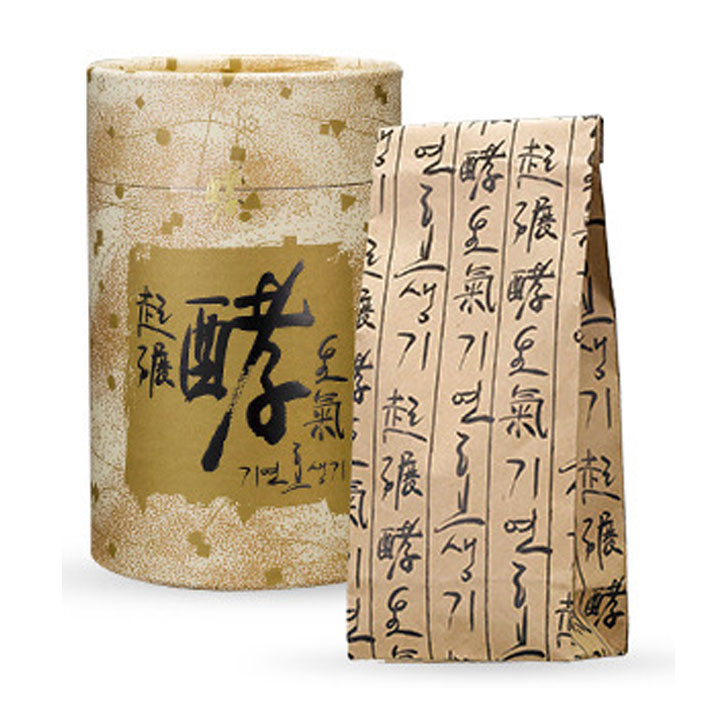 起碾
酵
生氣
기연효생기
起碾酵生氣기연효
酵生氣기연효생기
연효생기起碾酵生
起碾酵生氣기연
생기起碾酵